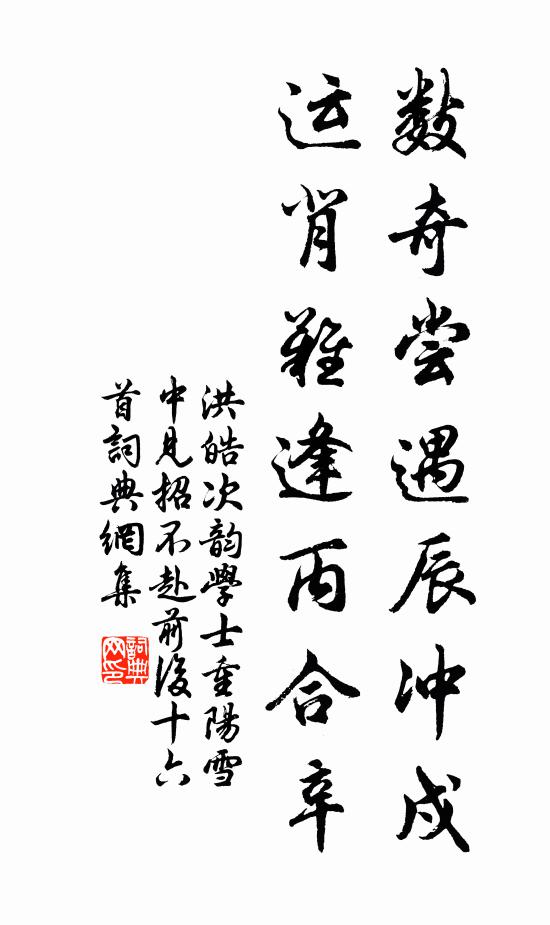 数奇尝遇辰冲戌
运背难逢丙合辛
洪皓次韵學士重陽雪
中見招不赴前後十六
首詞典網集
詞典
网印